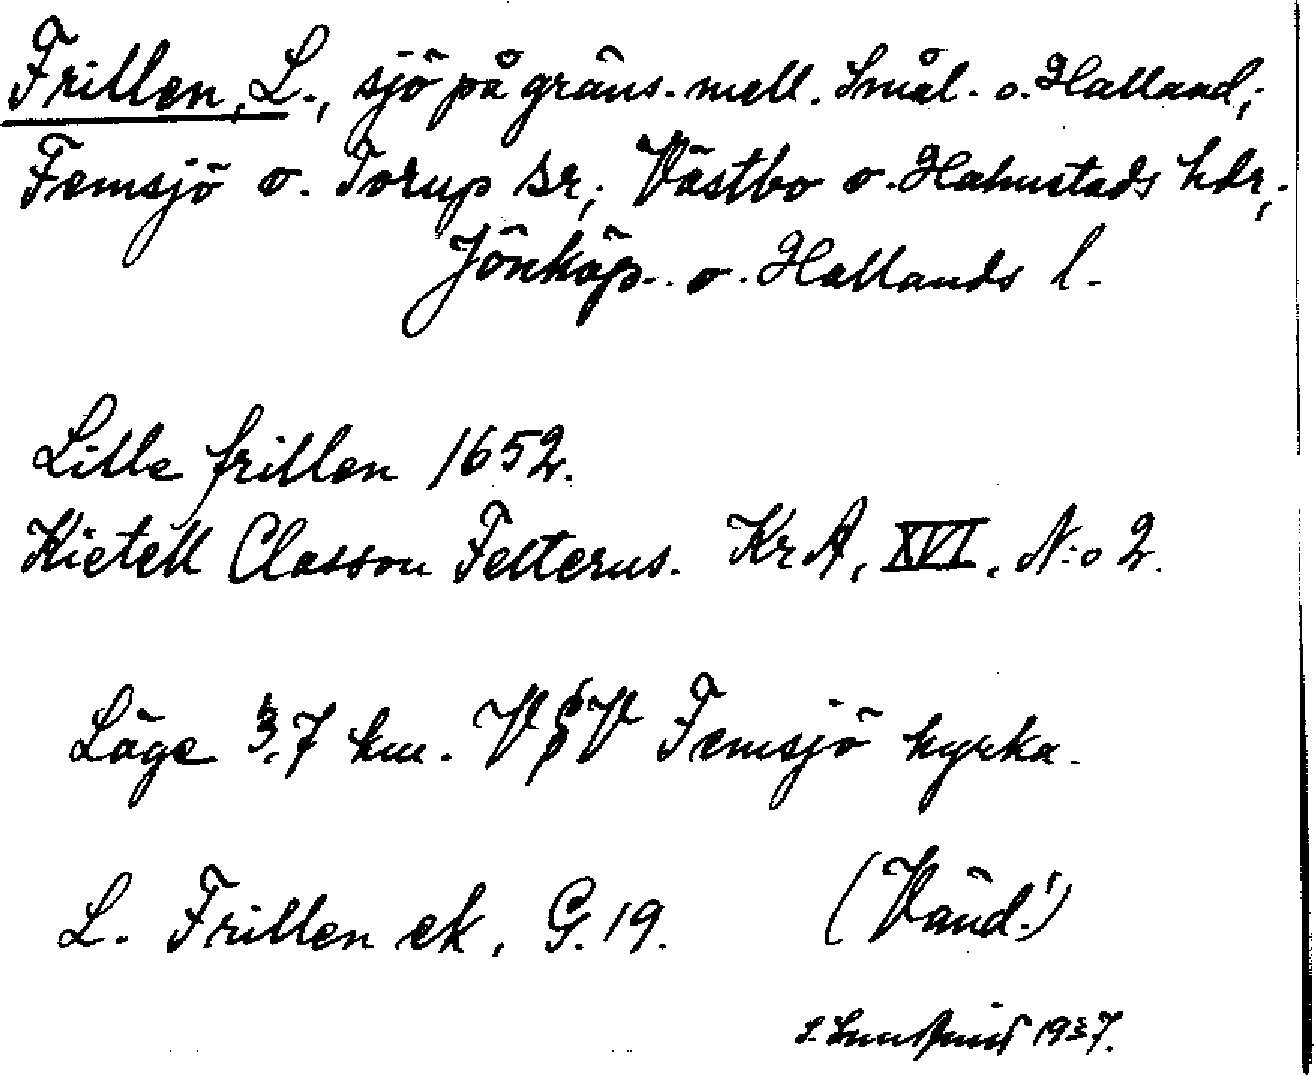 Frillen, L., sjö på gräns. mell. Smål. o. Halland;
Femsjö o. Torup sr; Västbo o. Halmstads hdr;
Jönköp. o. Hallands l.
Lille frillen 1652.
Kietell Classon Felterus. KrA, XVI. N:o 2.
Läge 3.7 km. V§V Femsjö kyrka.
L. Frillen ek, G. 19. (Vänd!)
S. Lundquist 1937.